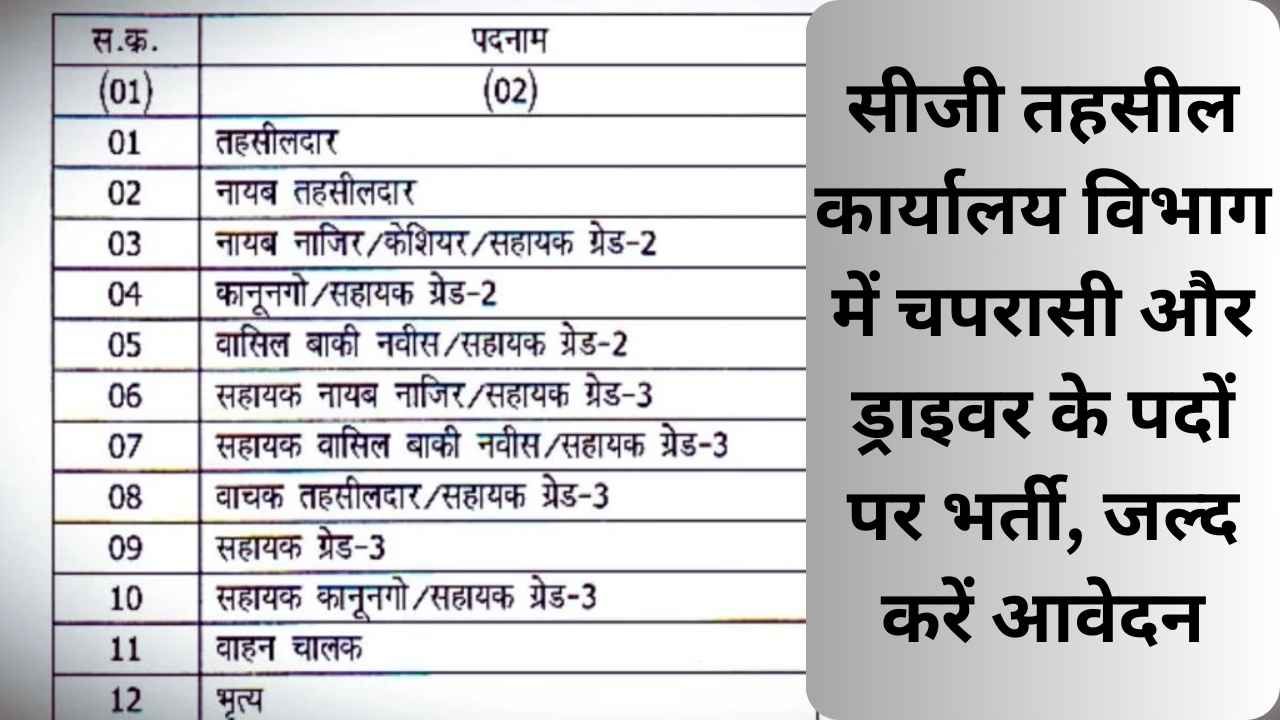 स.क्र. पदनाम
(01) (02)
01 तहसीलदार
02 नायब तहसीलदार
03 नायब नाजिर/केशियर/सहायक ग्रेड-2
04 कानूनगो/सहायक ग्रेड-2
05 वासिल बाकी नवीस/सहायक ग्रेड-2
06 सहायक नायब नाजिर/सहायक ग्रेड-3
07 सहायक वासिल बाकी नवीस/सहायक ग्रेड-3
08 वाचक तहसीलदार/सहायक ग्रेड-3
09 सहायक ग्रेड-3
10 सहायक कानूनगो/सहायक ग्रेड-3
11 वाहन चालक
12 भृत्य
सीजी तहसील
कार्यालय विभाग
में चपरासी और
ड्राइवर के पदों
पर भर्ती, जल्द
करें आवेदन